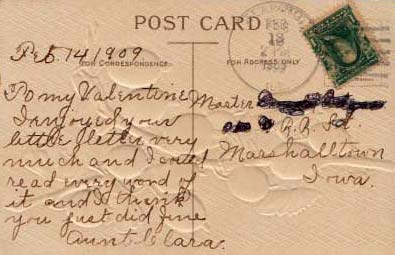 POST CARD
FOR CORRESPONDENCE
FOR ADDRESS ONLY
FEB
13
1909
Feb. 14 1909
To my Valentine
I enjoyed your
little letter very
much and I could
read every word of
it and I think
you just did fine
Aunt Clara.
Master
R.R. St.
Marshalltown
Iowa.